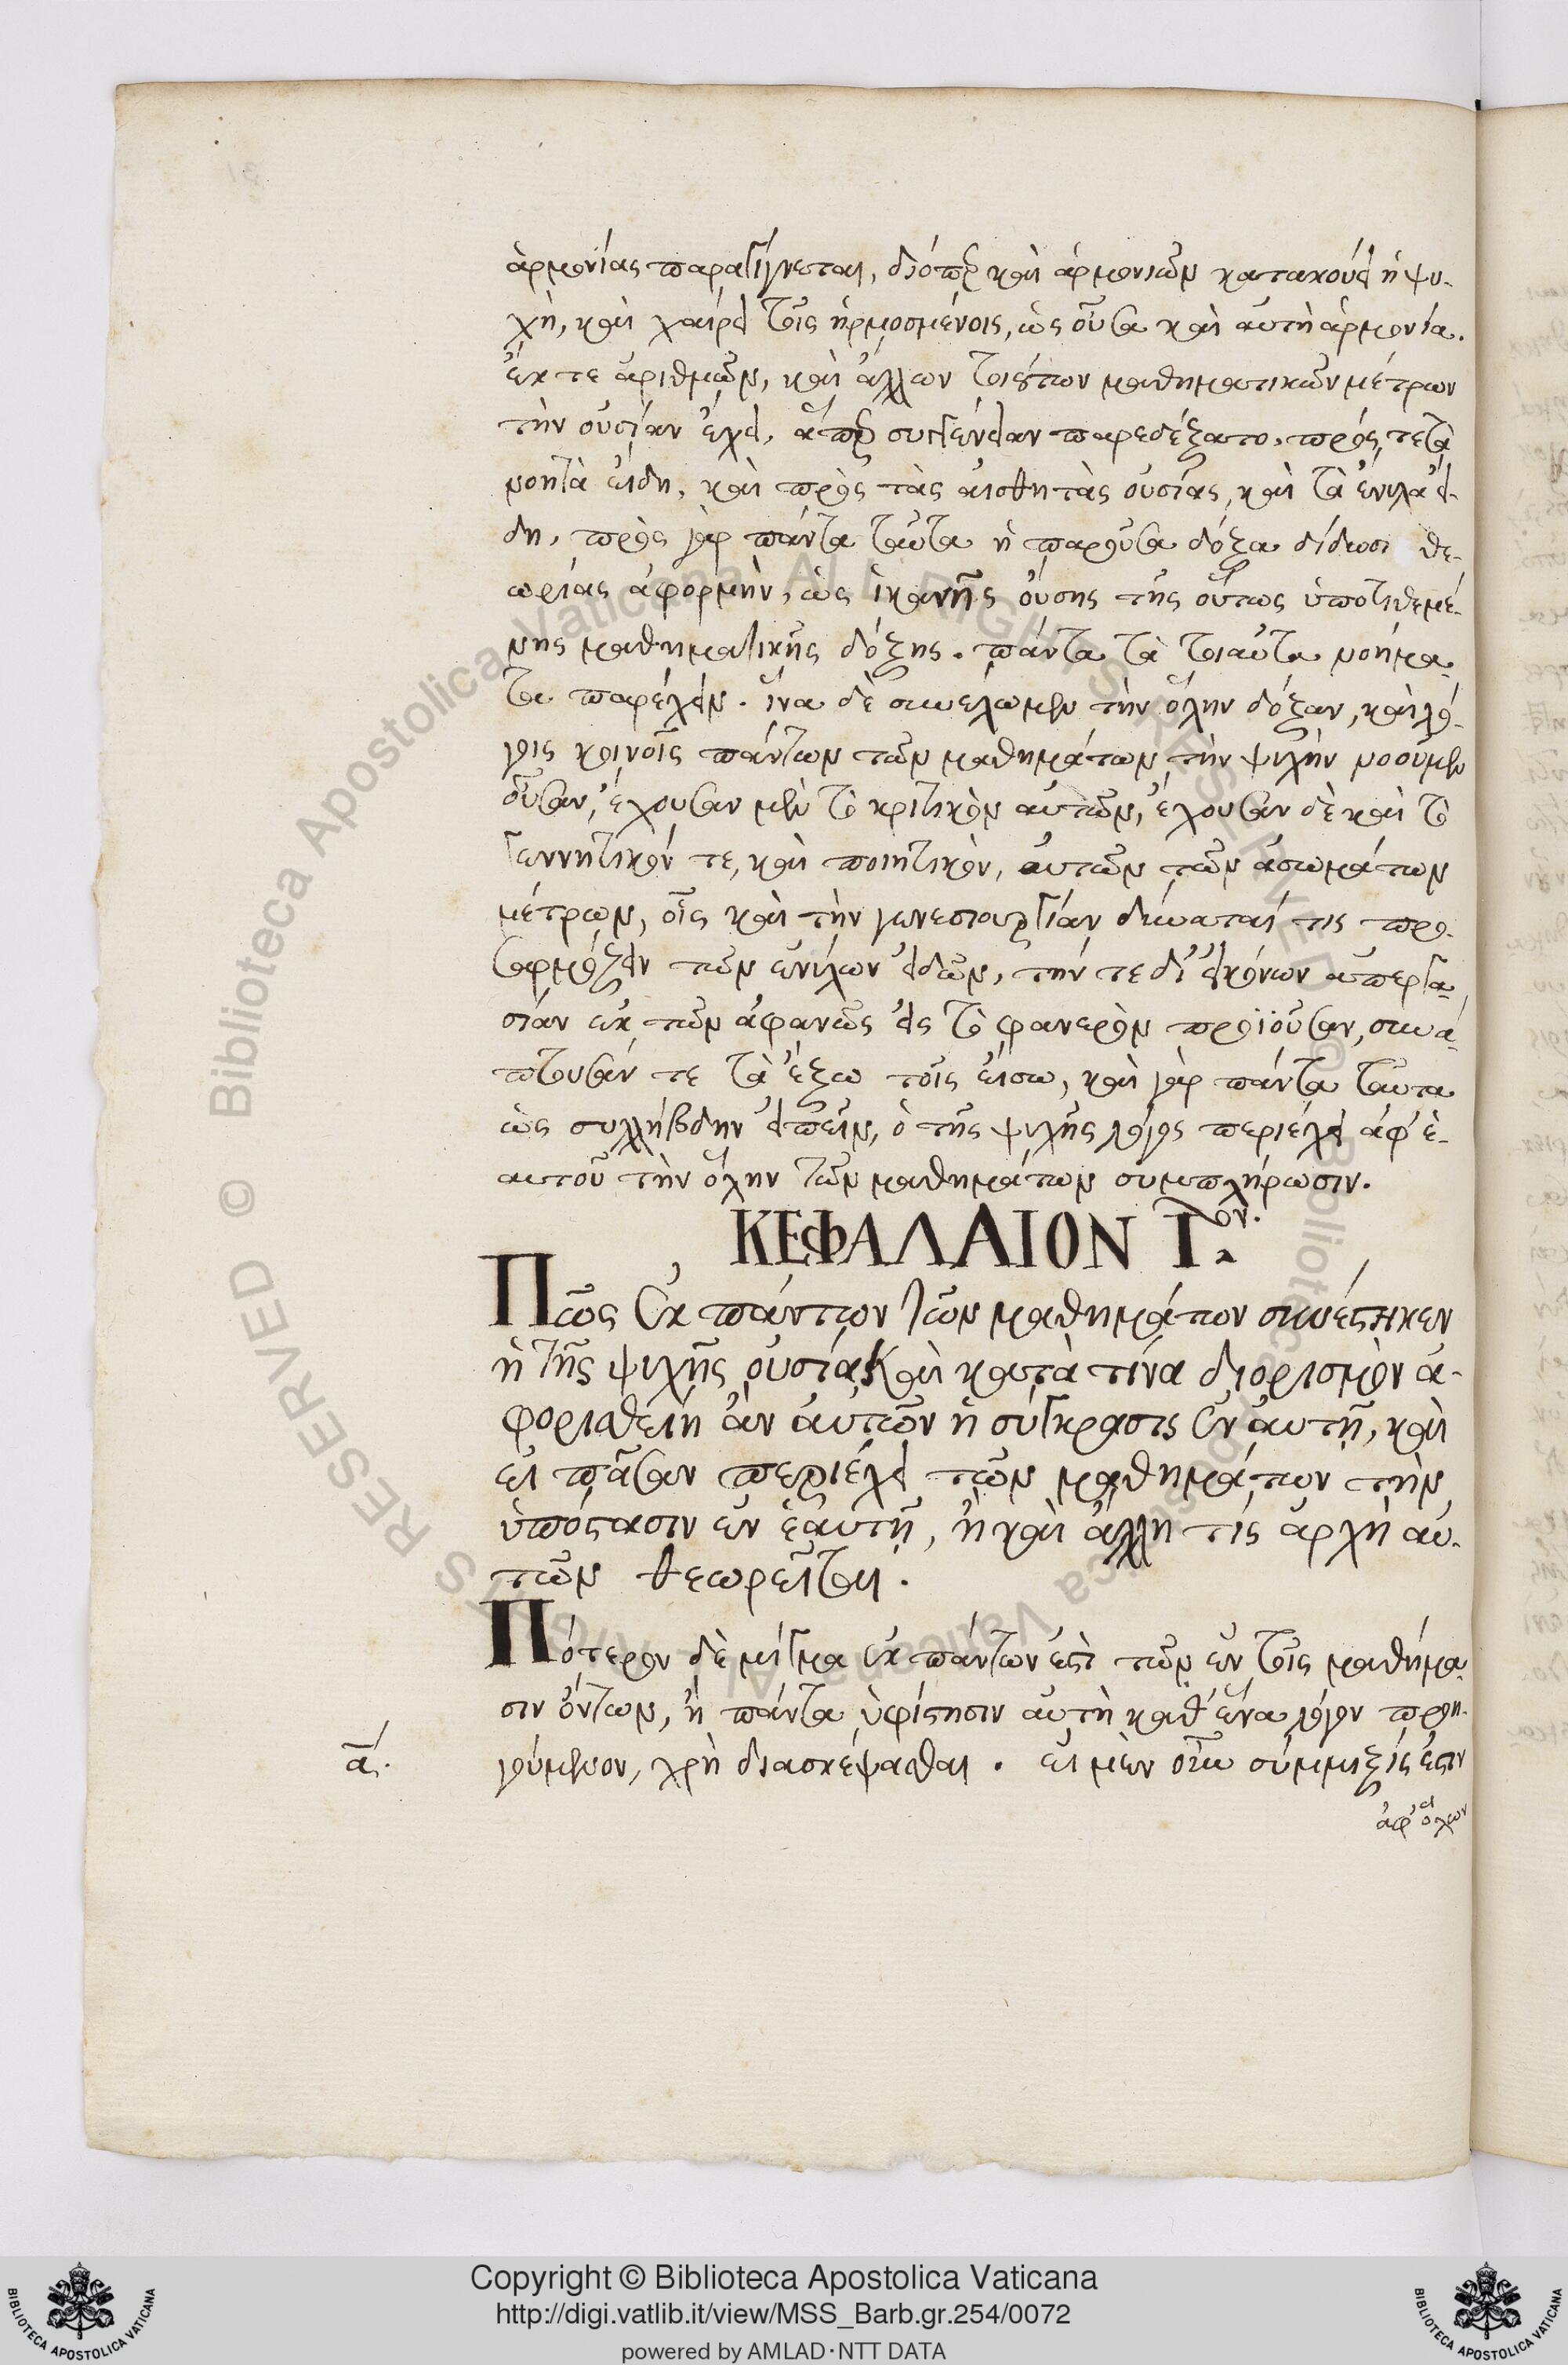 ἁρμονίας παραγίγνεται, διόπερ καὶ ἁρμονιῶν κατακούει ἡ ψυ-
χὴ, καὶ χαίρει τοῖς ἡρμοσμένοις, ὡς οὖσα καὶ αὐτὴ ἁρμονία.
ἔκ τε ἀριθμῶν, καὶ ἄλλων τοιούτων μαθηματικῶν μέτρων
τὴν οὐσίαν ἔχει, ἅπερ συγγένειαν παρεδέξατο, πρός τε τὰ
νοητὰ εἴδη, καὶ πρὸς τὰς αἰσθητὰς οὐσίας, καὶ τὰ ἔνυλα εἴ-
δη, πρὸς γὰρ πάντα ταῦτα ἡ παροῦσα δόξα δίδωσι θε-
ωρίας ἀφορμὴν, ὡς ἱκανῆς οὔσης τῆς οὕτως ὑποτιθεμέ-
νης μαθηματικῆς δόξης. πάντα τὰ τοιαῦτα νοήμα-
τα παρέχειν. ἵνα δὲ συνέλωμεν τὴν ὅλην δόξαν, καὶ λό-
γοις κοινοῖς πάντων τῶν μαθημάτων τὴν ψυχὴν νοοῦμεν
οὖσαν, ἔχουσαν μὲν τὸ κριτικὸν αὐτῶν, ἔχουσαν δὲ καὶ τὸ
γεννητικόν τε, καὶ ποιητικὸν, αὐτῶν τῶν ἀσωμάτων
μέτρων, οἷς καὶ τὴν γενεσιουργίαν δύναταί τις προ-
σαρμόζειν τῶν ἐνύλων εἰδῶν, τήν τε δι' εἰκόνων ἀπεργα-
σίαν ἐκ τῶν ἀφανῶς εἰς τὸ φανερὸν προϊοῦσαν, συνά-
πτουσάν τε τὰ ἔξω τοῖς εἴσω, καὶ γὰρ πάντα ταῦτα
ὡς συλλήβδην εἰπεῖν, ὁ τῆς ψυχῆς λόγος περιέχει ἀφ' ἑ-
αυτοῦ τὴν ὅλην τῶν μαθημάτων συμπλήρωσιν.
ΚΕΦΑΛΑΙΟΝ Ι.ον.
Πῶς ἐκ πάντων τῶν μαθημάτων συνέστηκεν
ἡ τῆς ψυχῆς οὐσία, καὶ κατὰ τίνα διορισμὸν ἀ-
φορισθείη ἂν αὐτῶν ἡ σύγκρασις ἐν αὐτῇ, καὶ
εἰ πᾶσαν περιέχει τῶν μαθημάτων τὴν
ὑπόστασιν ἐν ἑαυτῇ, ἢ καὶ ἄλλη τὶς ἀρχὴ αὐ-
τῶν θεωρεῖται.
Πότερον δὲ μίγμα ἐκ πάντων ἐστὶ τῶν ἐν τοῖς μαθήμα-
σιν ὄντων, ἢ πάντα ὑφίστησιν αὐτὴ καθ' ἕνα λόγον προη-
α. γούμενον, χρὴ διασκέψασθαι. εἰ μὲν οὖν σύμμιξίς ἐστιν
ἀφ' ὅλων
Copyright © Biblioteca Apostolica Vaticana
http://digi.vatlib.it/view/MSS_Barb.gr.254/0072
powered by AMLAD·NTT DATA